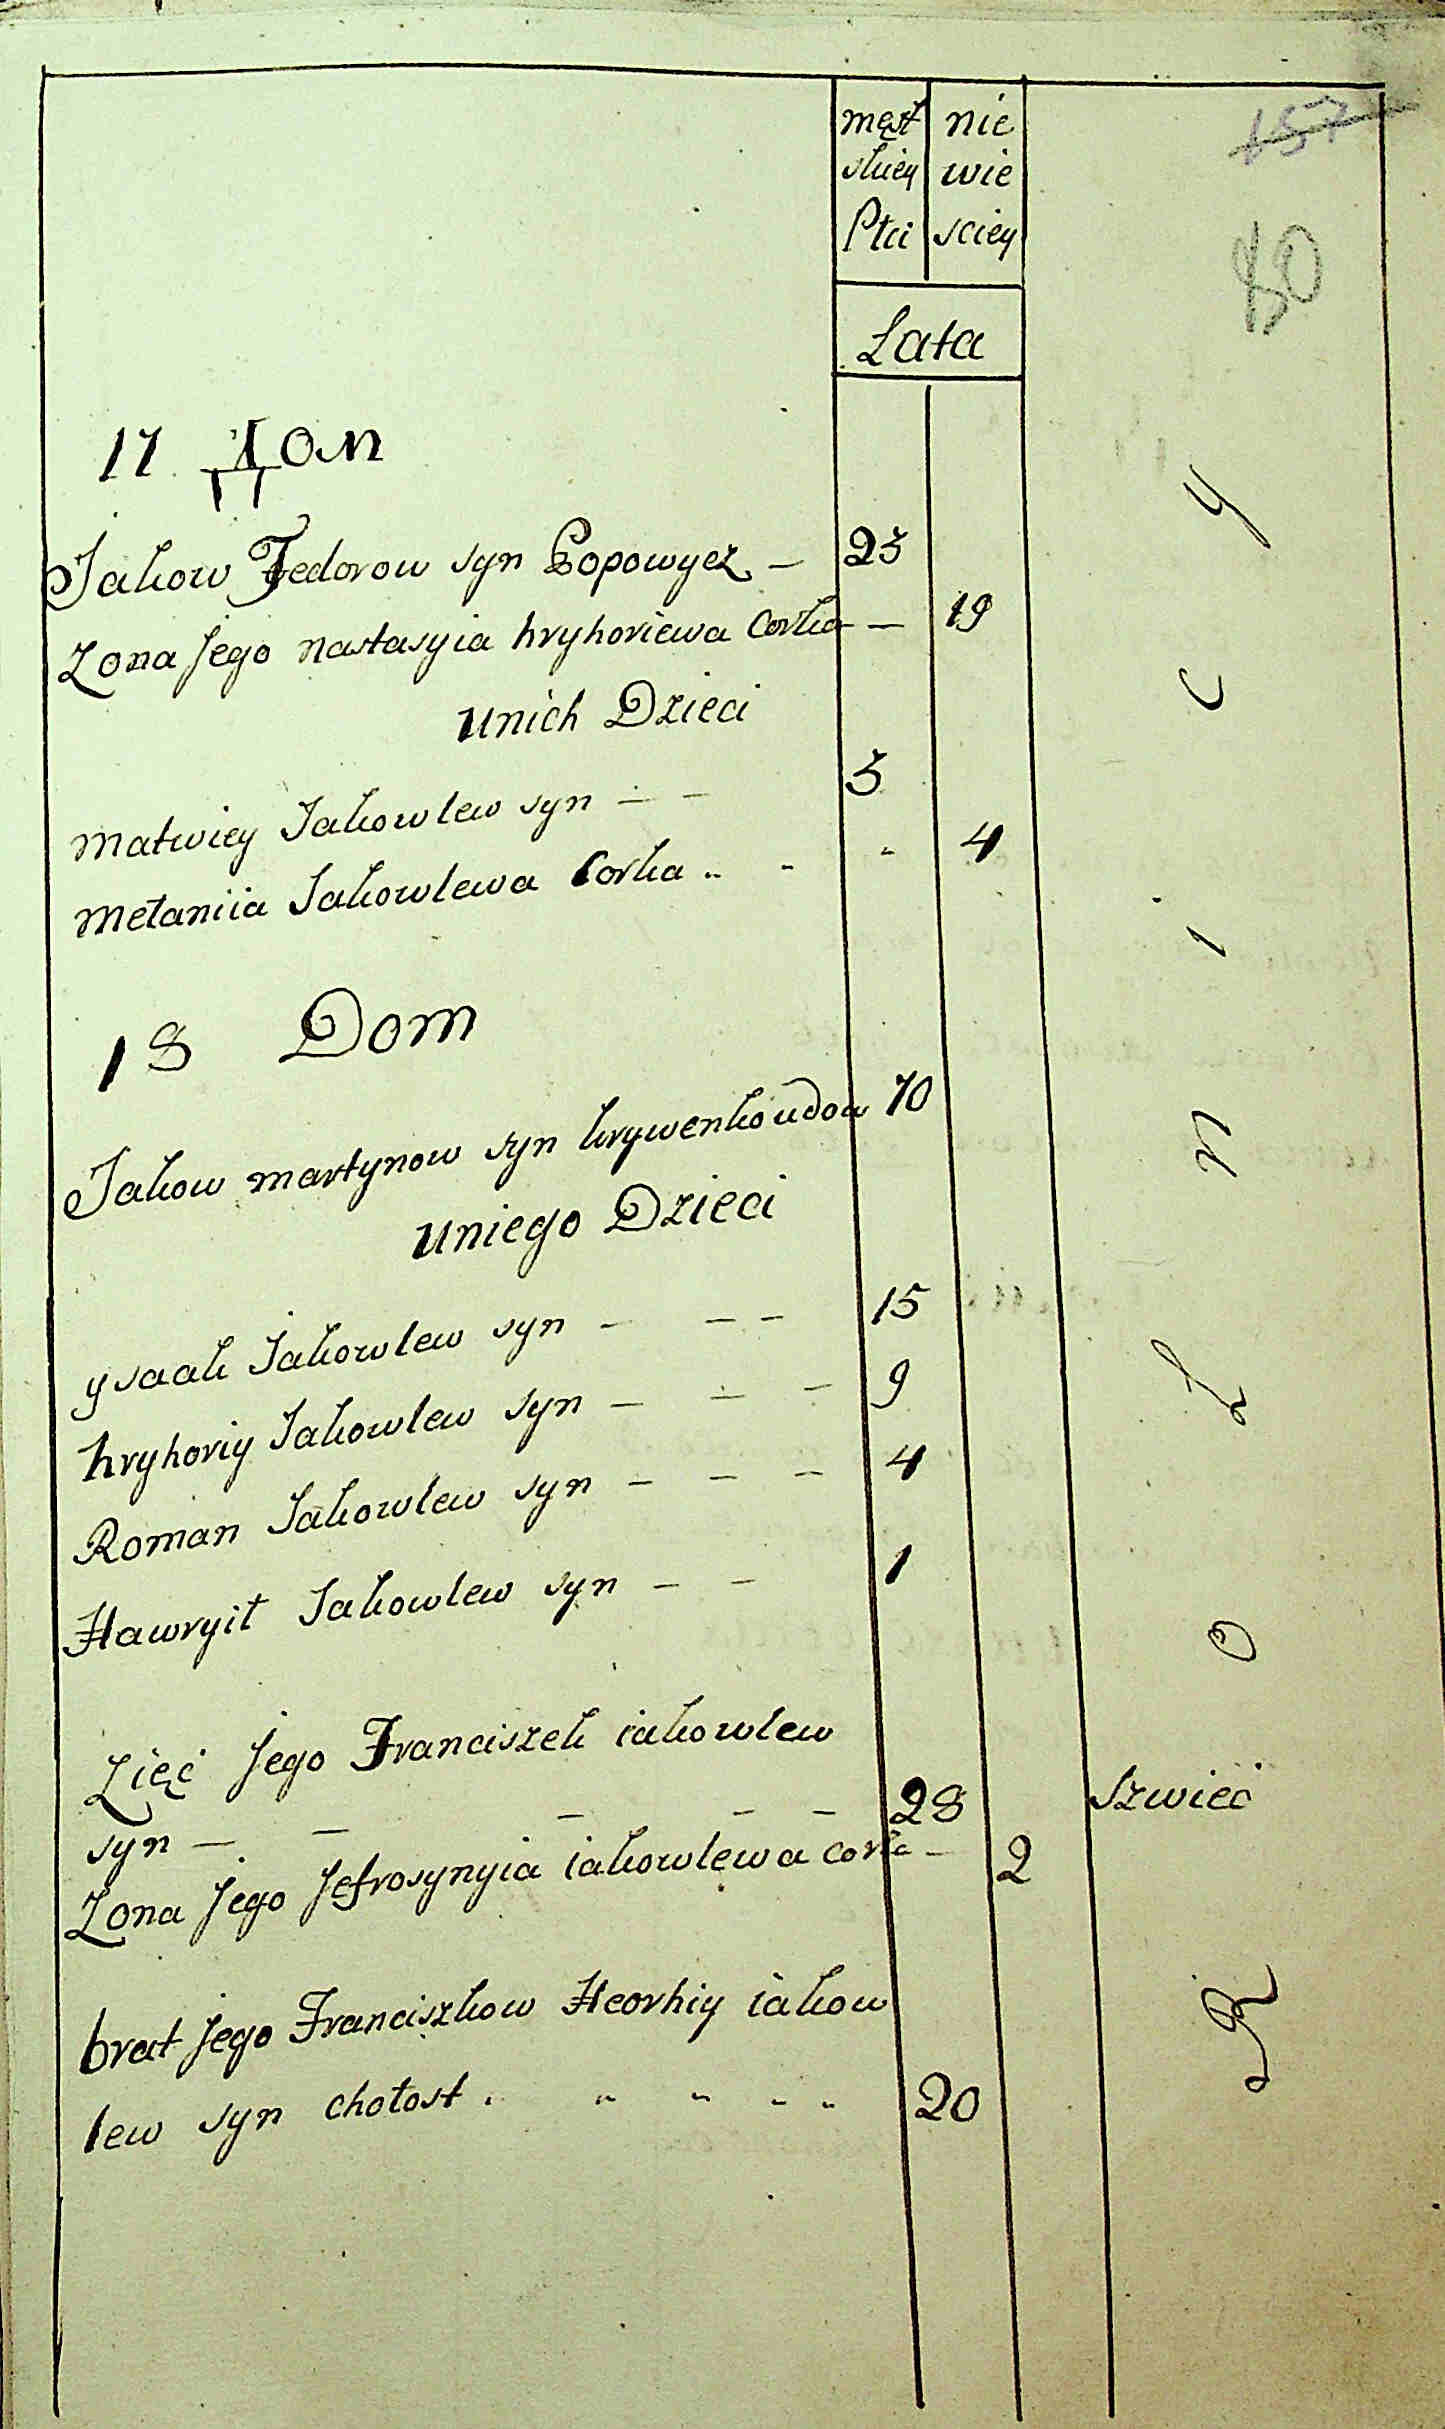 męsk nie
skiey wie
Płci sciey
157
80
Lata
17 Дом
Jakow Fedorow syn Popowycz — 25
Zona Jego nastasyia hryhoriewa Corka — 19
unich Dzieci
matwiey Jakowlew syn — — 5
metaniia Jakowlewa Corka .. - - 4
18 Dom
Jakow martynow syn krywenko udow 70
uniego Dzieci
ysaak Jakowlew syn — — — 15
hryhoriy Jakowlew syn — — — 9
Roman Jakowlew syn — — — 4
Hawryił Jakowlew syn — — 1
Zięć Jego Franciszek iakowlew
syn — — — — — 28 szwiec
Zona Jego Jefrosynyia iakowlewa cork — 2
brat Jego Franciszkow Heorhiy iakow
lew syn chołost . 20
R o l n i c y